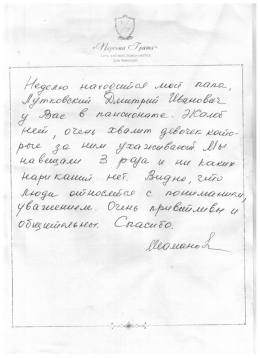 «Персона Грата»
Неделю находится мой папа,
Лутковский Дмитрий Иванович
у Вас в пансионате. Жалоб
нет, очень хвалит девочек кото-
рые за ним ухаживают Мы
навещали 3 раза и ни каких
нариканий нет. Видно, что
люди относятся с пониманием,
уважением. Очень приветливы и
общительны. Спасибо.